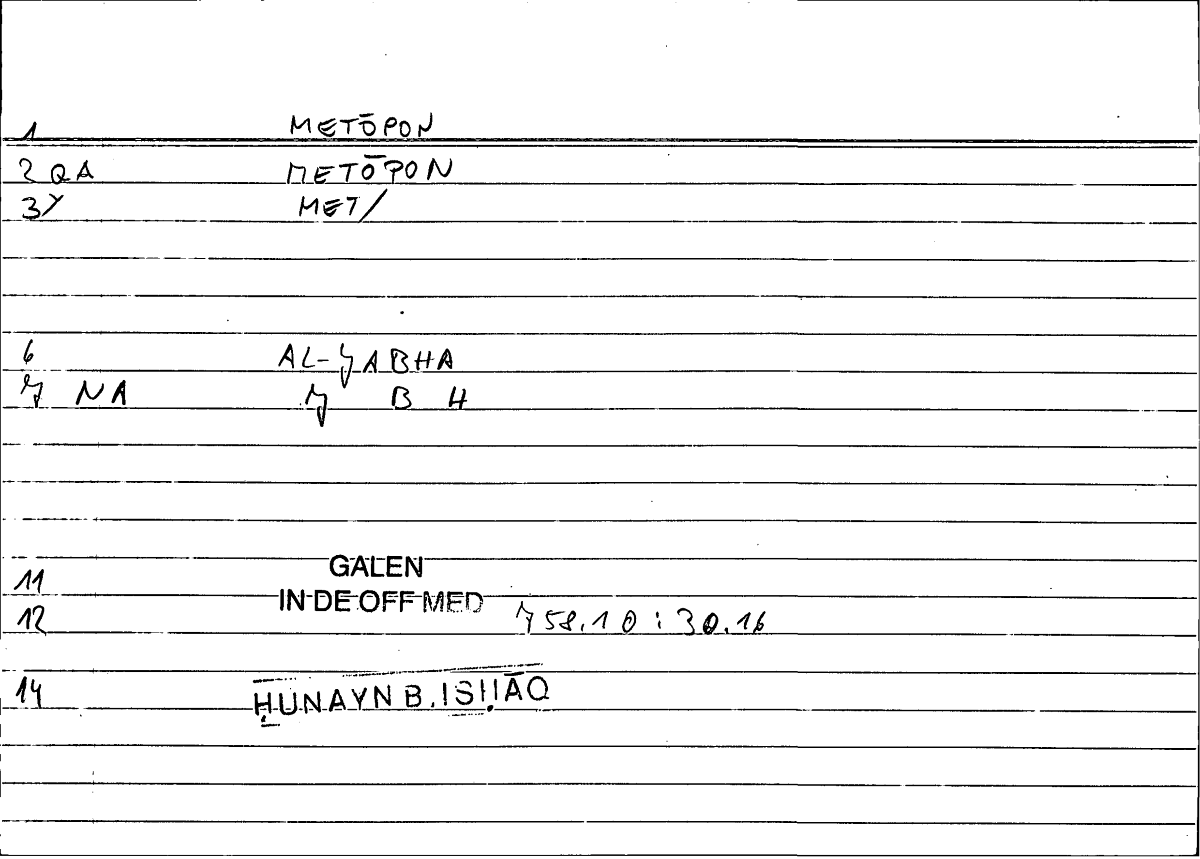 1 METŌPON
2 QA METŌPON
3Y MET/
6 AL-JABHA
7 NA J B H
11 GALEN
12 IN DE OFF MED 758.10 : 30.16
14 ḤUNAYN B. ISḤĀQ